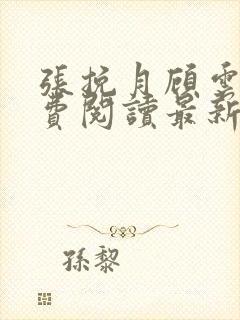 張挽月顧雲
費閱讀最新
孫黎